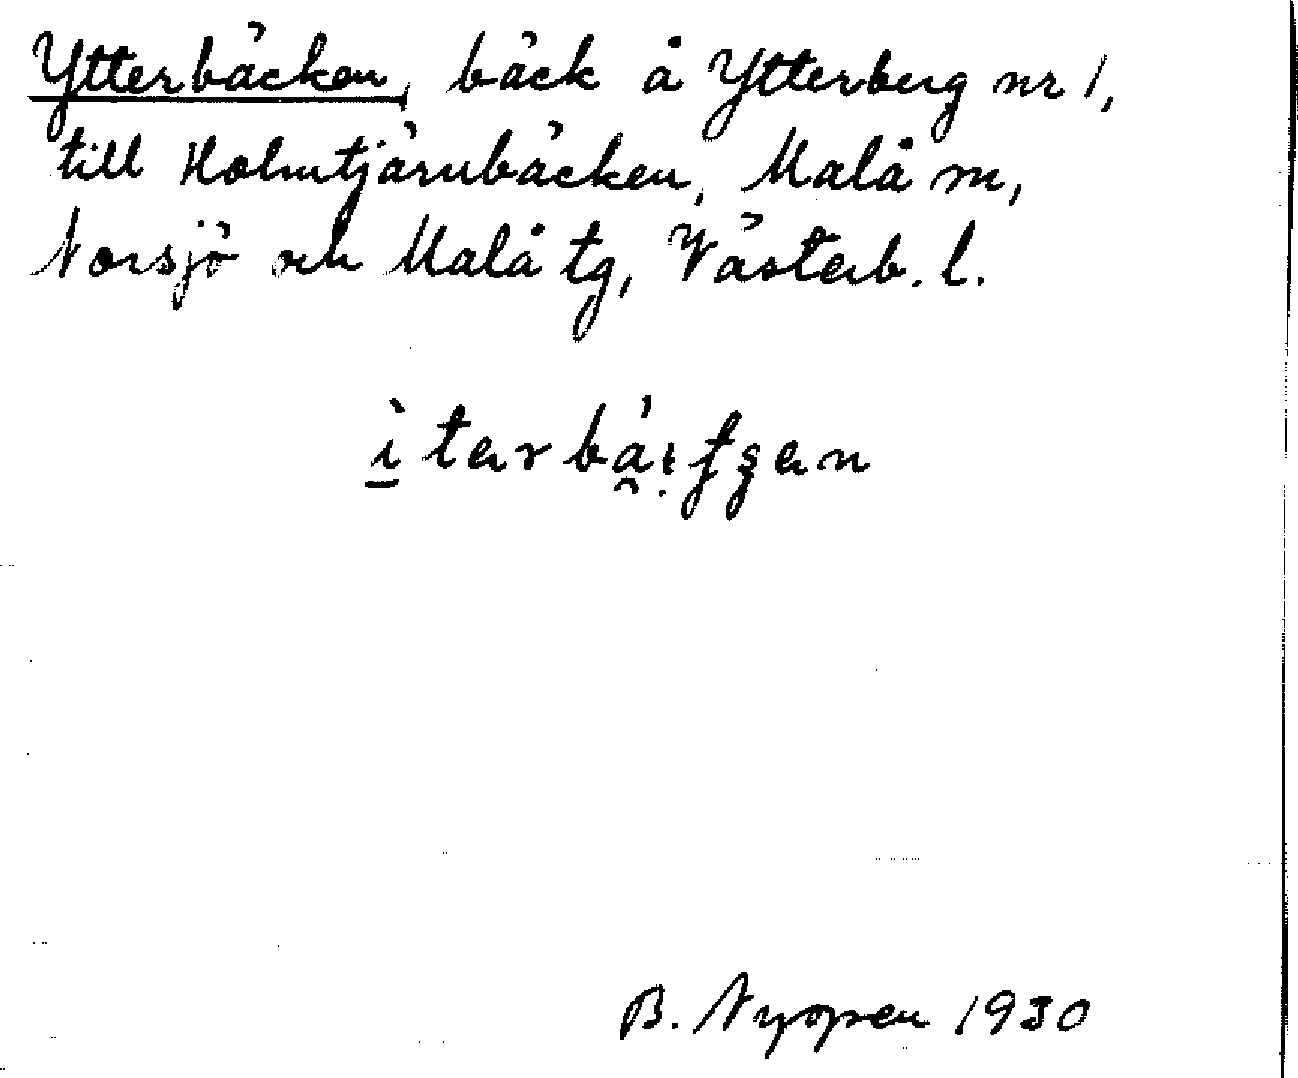 Ytterbäcken, bäck å Ytterberg nr 1,
till Holmtjärnbäcken, Malå m,
Norsjö och Malå tg, Västerb. l.
B. Nyopen 1930